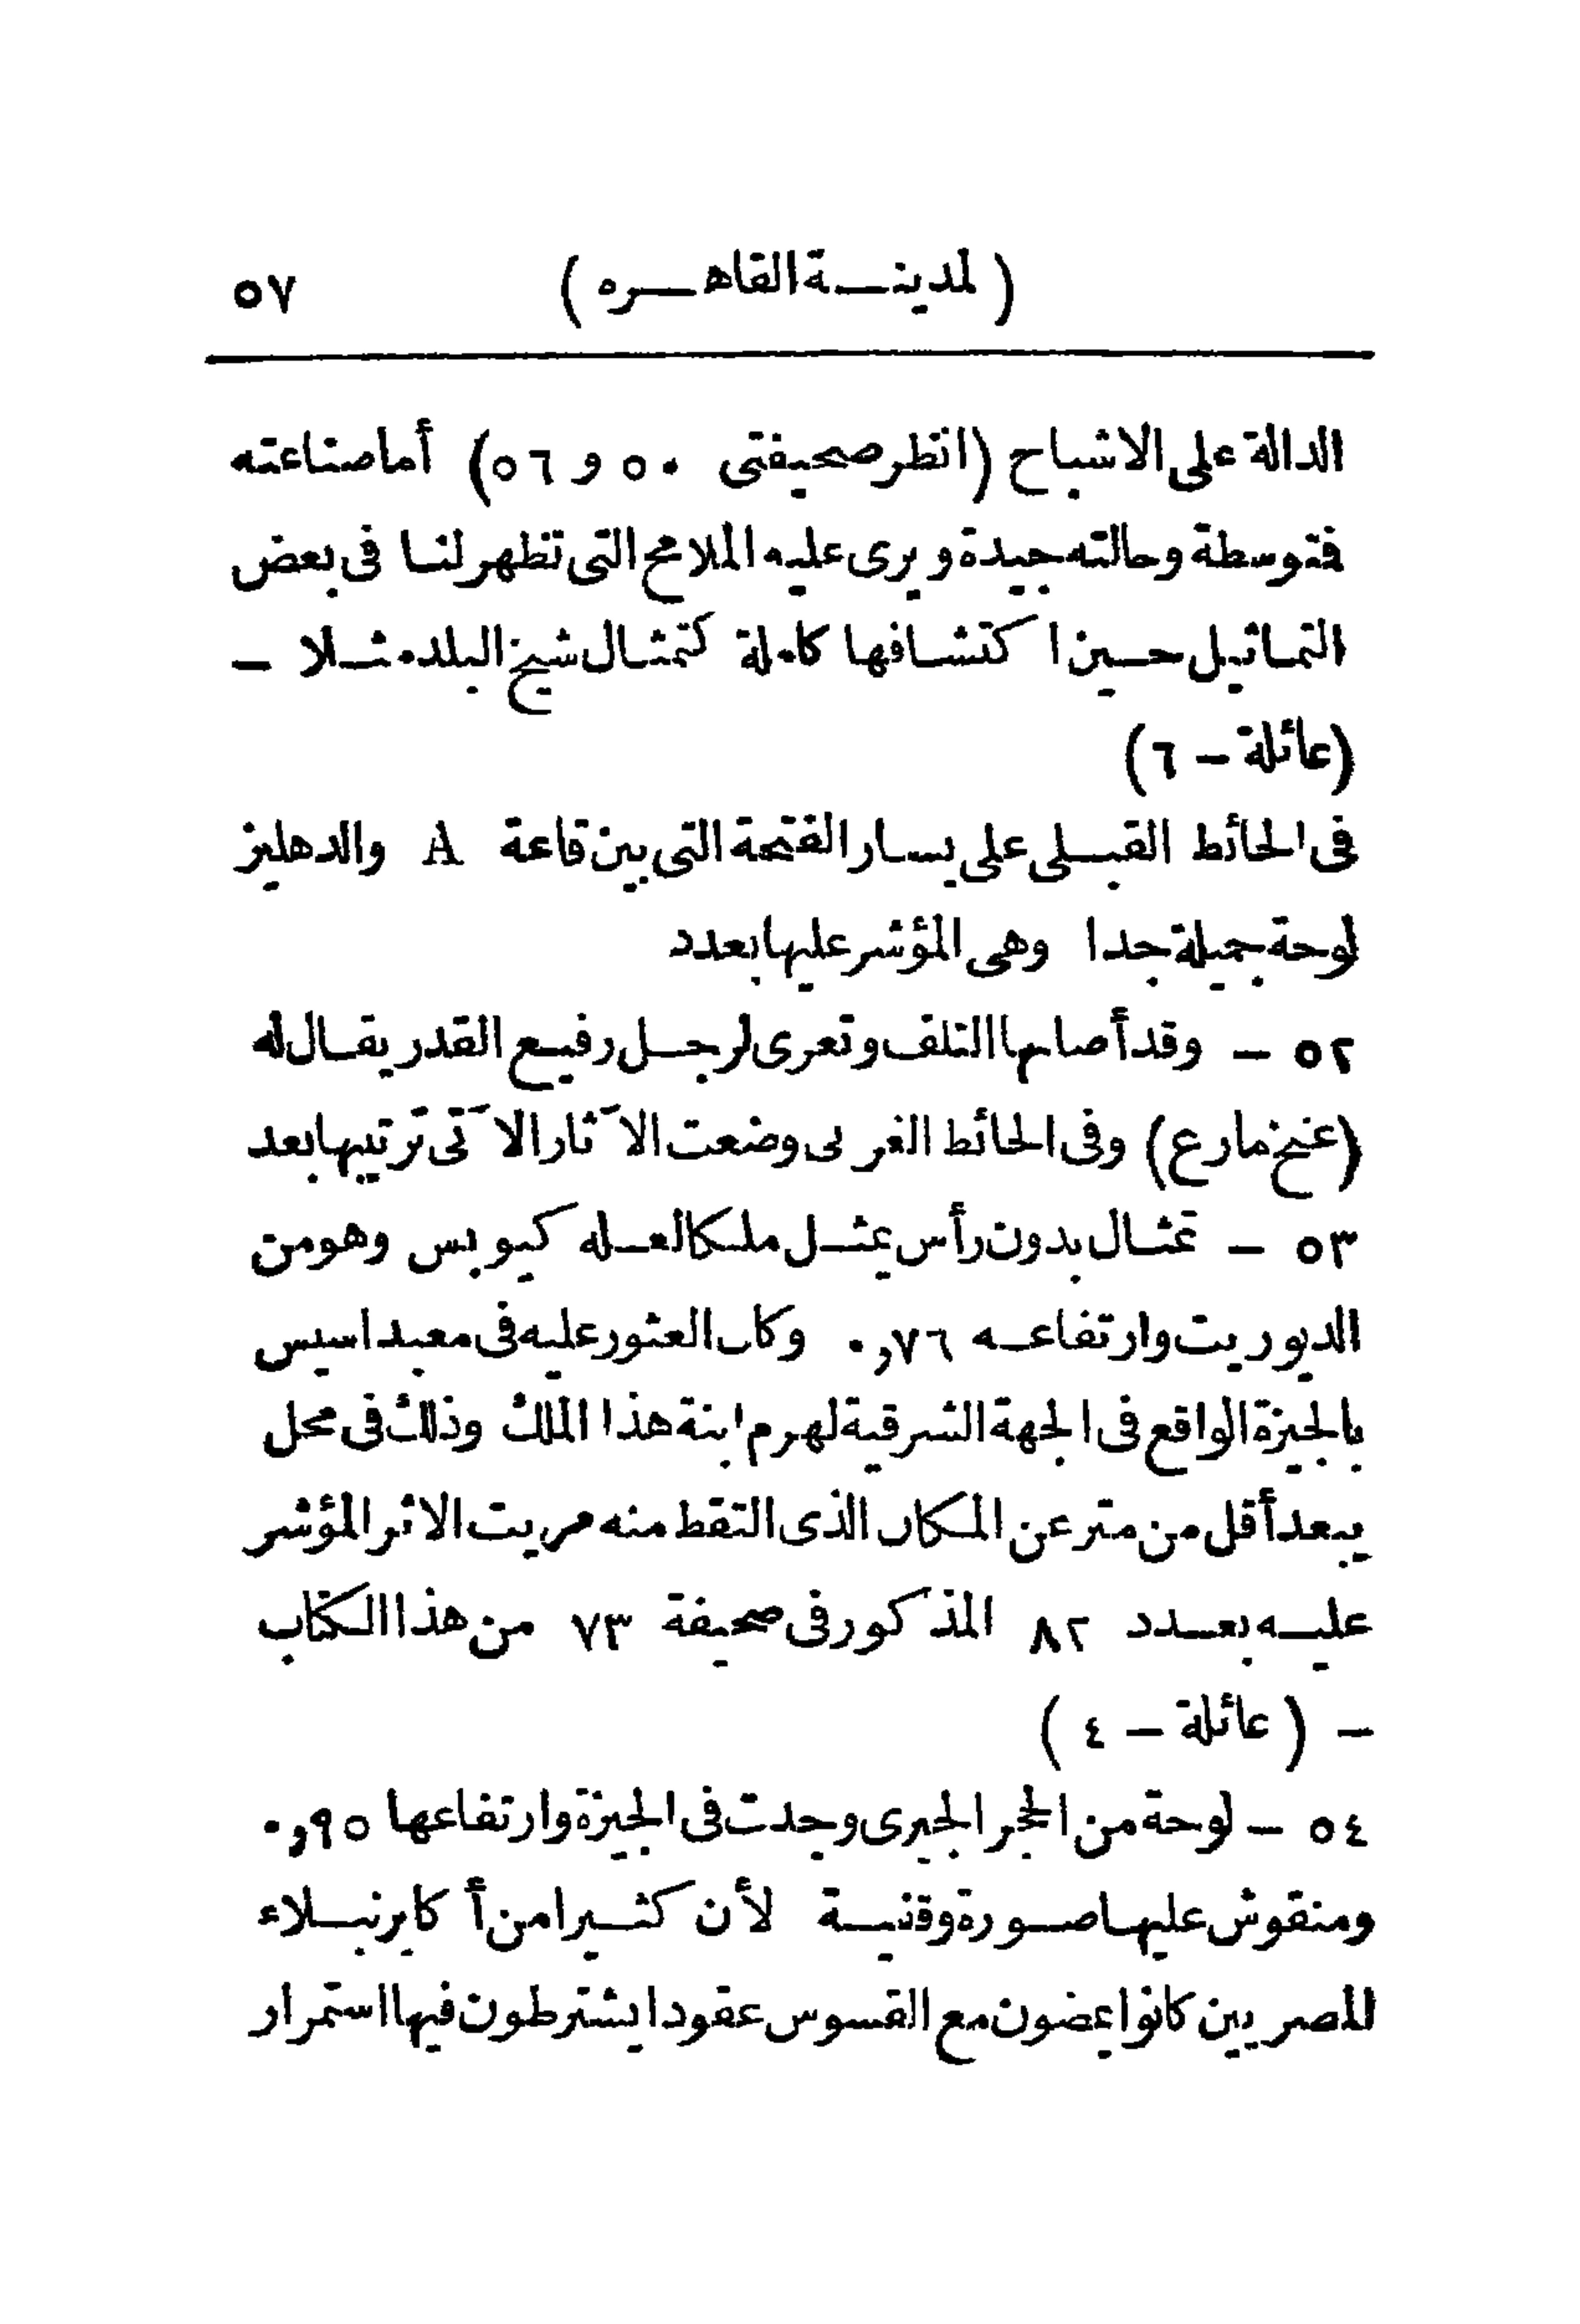 (لمدينة القاهره) ٥٧
الدالة على الاشباح (انظر صحيفتى ٥٠ و ٥٦) أما صناعته
فتوسطة وحالته جيدة ويرى عليه الملامح التى تظهر لنا فى بعض
التماثيل حين اكتشافها كاملة كتمثال شيخ البلد مثلا –
(عائلة – ٦)
فى الحائط القبلى على يسار الفتحة التى بين قاعة A والدهليز
لوحة جميلة جدا وهى المؤشر عليها بعدد
٥٢ – وقد أصابها التلف وتعرى لرجل رفيع القدر يقال له
(عنخ مارع) وفى الحائط الغربى وضعت الآثار الآتى ترتيبها بعد
٥٣ – تمثال بدون رأس يمثل ملكا لعله كيوبس وهو من
الديوريت وارتفاعه ٠,٧٦ وكان العثور عليه فى معبد اسيس
بالجيزة الواقع فى الجهة الشرقية لهرم ابنة هذا الملك وذلك فى محل
يبعد أقل من متر عن المكان الذى التقط منه مريت الاثر المؤشر
عليه بعدد ٨٢ المذكور فى صحيفة ٧٣ من هذا الكتاب
– (عائلة – ٤)
٥٤ – لوحة من الحجر الجيرى وجدت فى الجيزة وارتفاعها ٠,٩٥
ومنقوش عليها صورة وقنية لأن كثيرا من أكابر نبلاء
المصريين كانوا يمضون مع القسوس عقودا يشترطون فيها استمرار